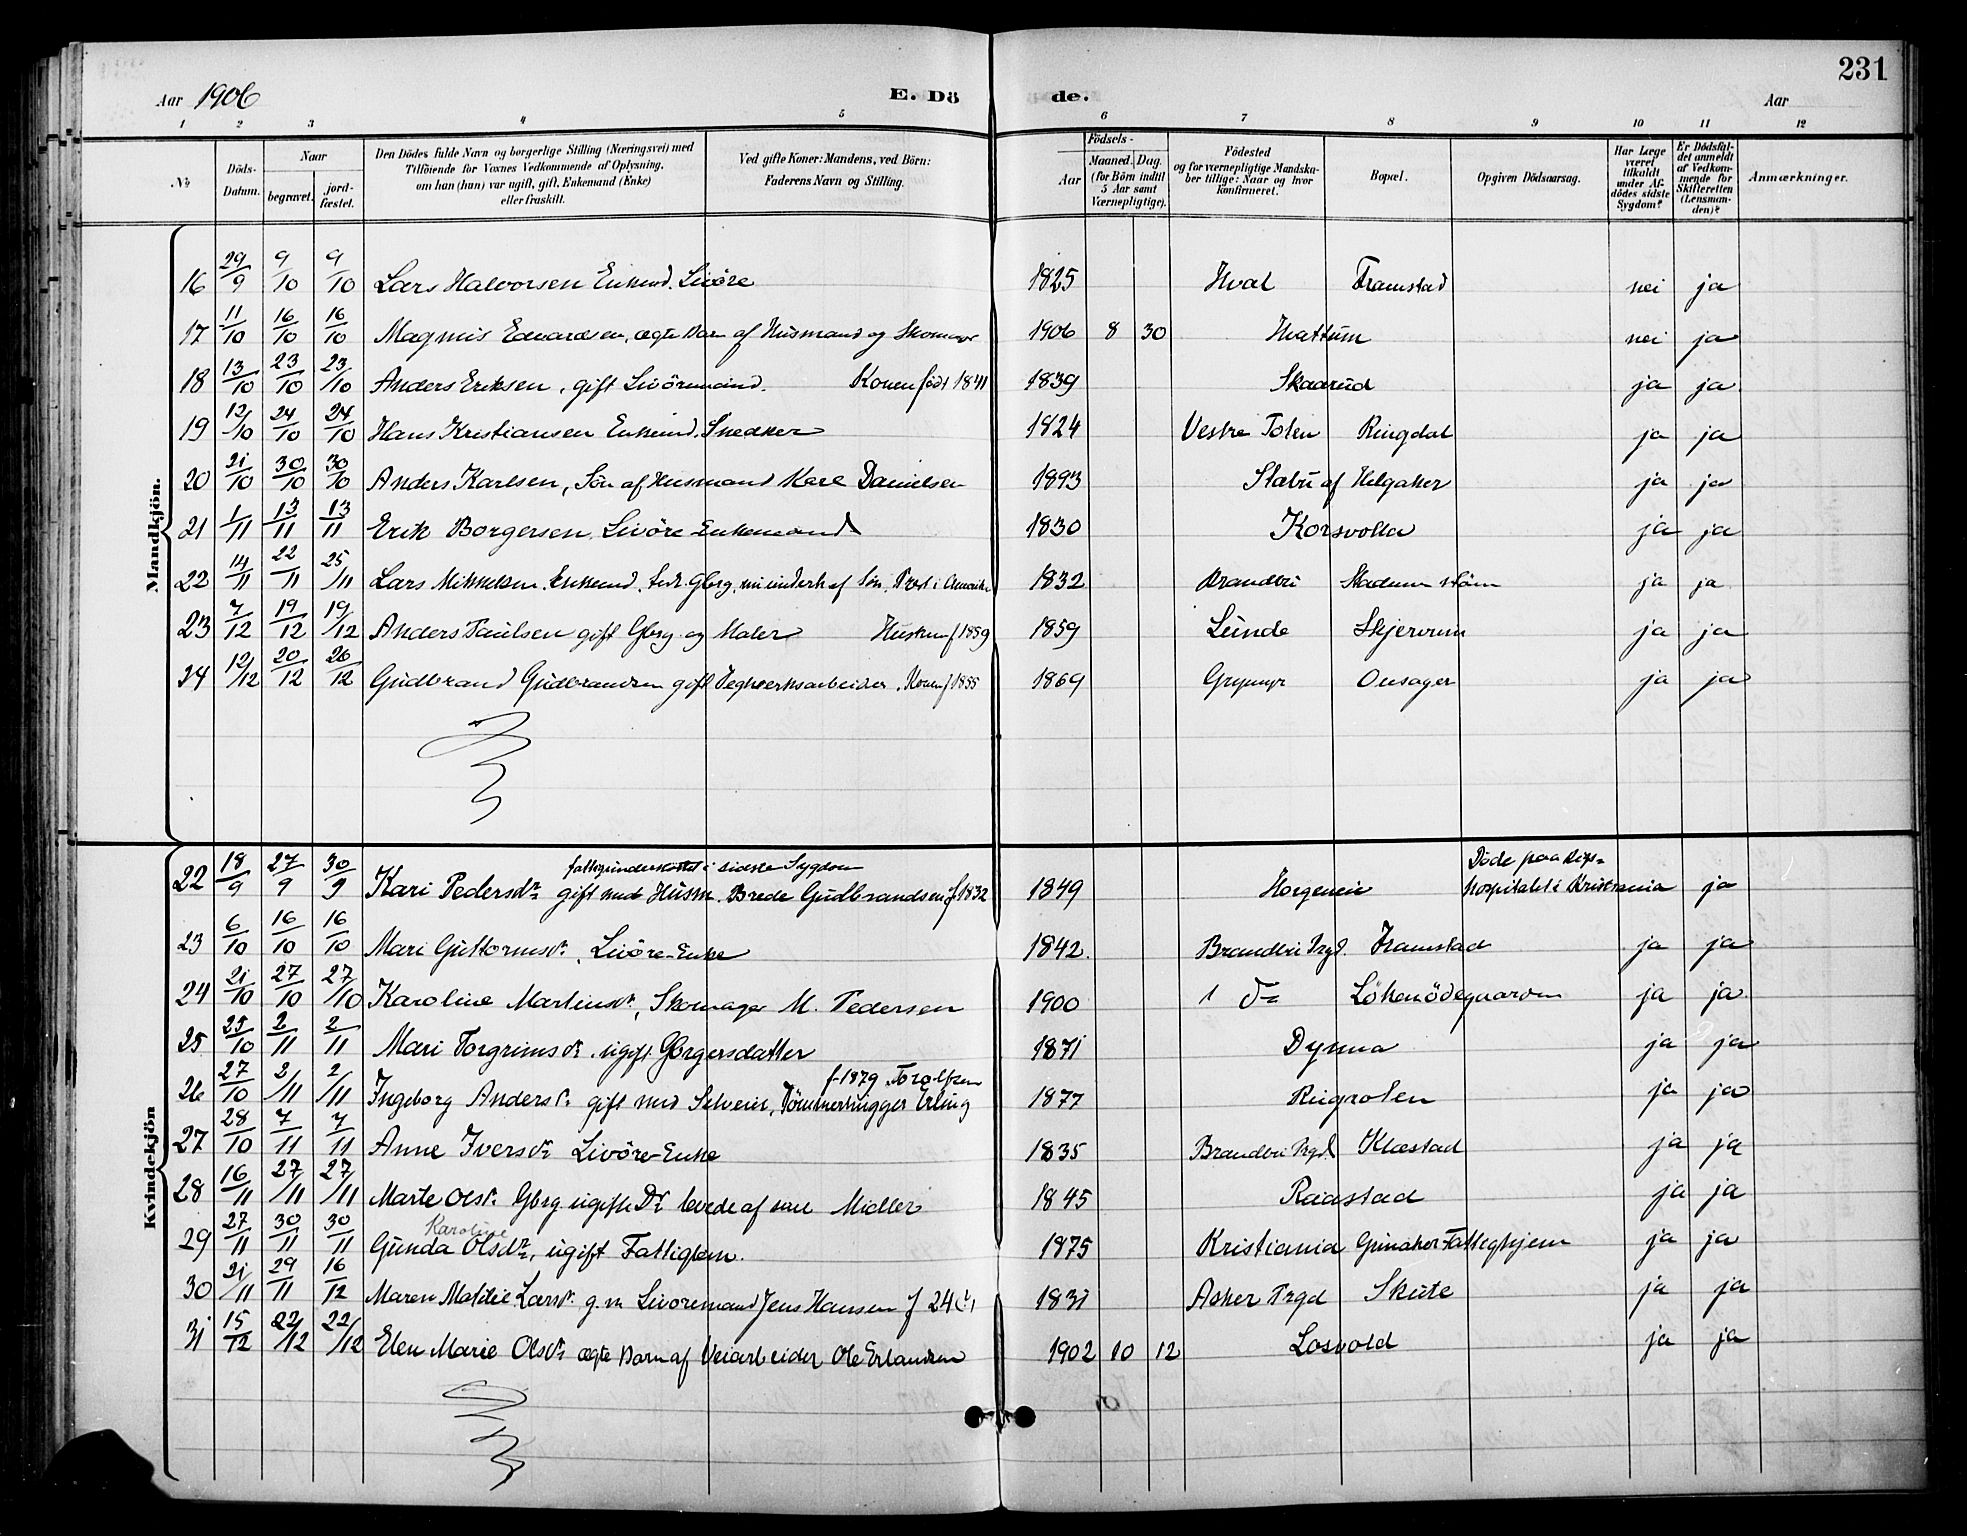 231
Aar 1906 E. Dö de. Aar
1 2 3 4 5 6 7 8 9 10 11 12
No
Döds-Datum.
Naar
begravet.
jord-fæstet.
Den Dödes fulde Navn og borgerlige Stilling (Næringsvei) med
Tilföiende for Voxnes Vedkommende af Oplysning,
om han (hun) var ugift, gift, Enkemand (Enke)
eller fraskilt.
Ved gifte Koner: Mandens, ved Börn:
Faderens Navn og Stilling.
Födsels-
Aar
Maaned. Dag.
(for Börn indtil
5 Aar samt
Værnepligtige).
Födested
og for værnepligtige Mandska-
ber tillige: Naar og hvor
konfirmeret.
Bopæl.
Opgiven Dödsaarsag.
Har Læge
været
tilkaldt
under Af-
dödes sidste
Sygdom?
Er Dödsfal-
det anmeldt
af Vedkom-
mende for
Skifteretten
(Lensman-
den)?
Anmærkninger.
Mandkjön.
16 29/9 9/10 9/10 Lars Halvorsen Enkemd. Livöre 1825 Hval Framstad nei ja
17 11/10 16/10 16/10 Magnus Edvardsen, ægte Barn af Husmand og Skomager 1906 8 30 Hvattum nei ja
18 13/10 23/10 23/10 Anders Eriksen, gift Livöremand. Konen födt 1841 1839 Skaarud ja ja
19 12/10 24/10 24/10 Hans Kristiansen Enkemd. Snedker 1824 Vestre Toten Ringdal ja ja
20 21/10 30/10 30/10 Anders Karlsen, Sön af Husmand Karl Danielsen 1893 Stabu af Helgaker ja ja
21 1/11 13/11 13/11 Erik Borgersen Livöre-Enkemand 1830 Korsvolla ja ja
22 14/11 22/11 25/11 Lars Mikkelsen. Enkemd. Gbrg. af Sön, Prest i Amerika 1832 Brandbu ja ja
23 7/12 19/12 19/12 Anders Paulsen gift Gbrg. og Maler Hustru f 1859 1859 Lunde Skjervum ja ja
24 12/12 20/12 26/12 Gudbrand Gudbrandsen gift Teglverksarbeider. Konen f 1855 1869 Grymyr Onsager ja ja
Kvindekjön
fattigunderstöttet i sidste Sygdom
22 18/9 27/9 30/9 Kari Pedersdr. gift med Husm. Brede Gudbrandsen f 1832 1849 Horgeneie Döde paa Rigs-
hospitalet i Kristiania ja
23 6/10 16/10 16/10 Mari Guttormsdr., Livöre-Enke 1842 Brandbu Prgd. Framstad ja ja
24 21/10 27/10 27/10 Karoline Martinsdr., Skomager M. Pedersen 1900 Lökenödegaarden ja ja
25 25/10 2/11 2/11 Mari Torgrimsdr. ugift Gbrgersdatter 1871 Dynna ja ja
f. 1879 Torolfsen
26 27/10 2/11 2/11 Ingeborg Andersdr. gift med Selveier, Tömmerhugger Erling 1877 Ringroten ja ja
27 28/10 7/11 7/11 Anne Iversdr. Livöre-Enke 1835 Brandbu Prgd. Klæstad ja ja
28 16/11 27/11 27/11 Marte Olsdr. Gbrg. ugifte Dr. levede af sine Midler 1845 Raastad ja ja
Karoline
29 27/11 30/11 30/11 Gunda Olsdr., ugift Fattiglem. 1875 Kristiania Grinaker Fattighjem ja ja
30 21/11 29/11 16/12 Maren Matilde Larsdr. g. m. Livöremand Jens Hansen f 24 1831 Asker Prgd Skute ja ja
31 15/12 22/12 22/12 Elen Marie Olsdr. ægte Barn af Veiarbeider Ole Erlandsen 1902 10 12 Losvold ja ja